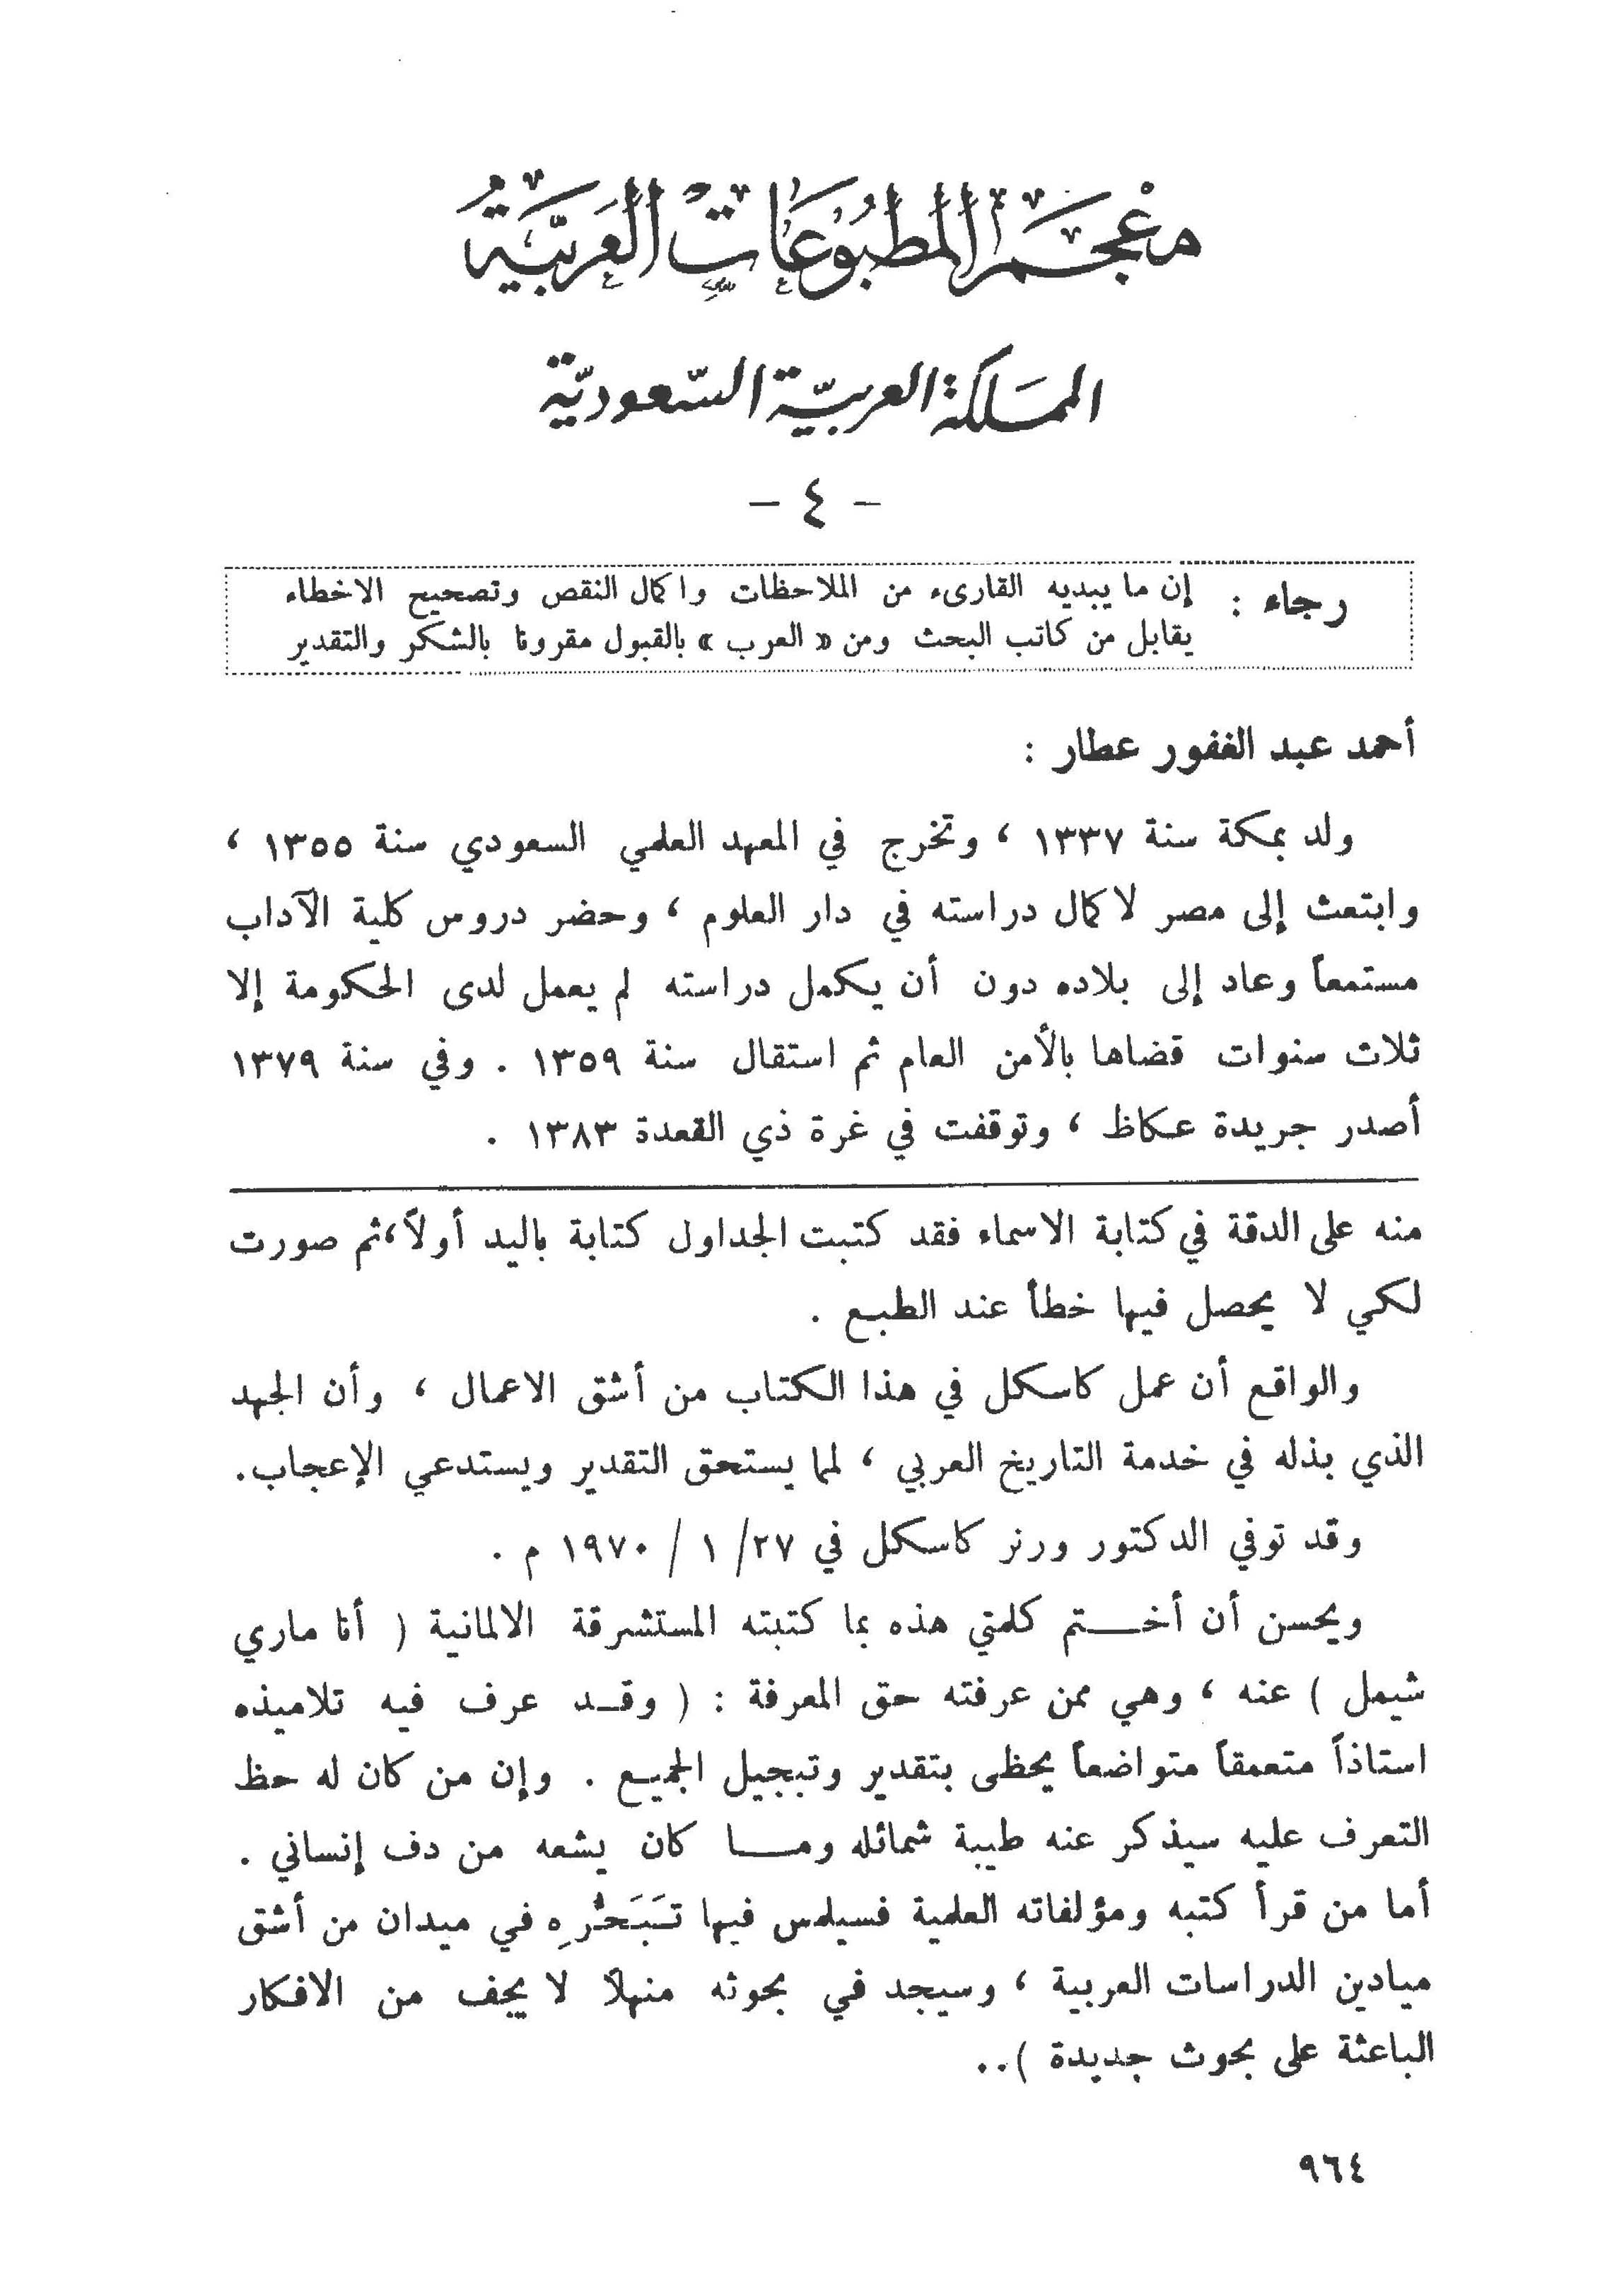 معجم المطبوعات العربية
المملكة العربية السعودية
- ٤ -
رجاء : إن ما يبديه القارىء من الملاحظات واكمال النقص وتصحيح الاخطاء
يقابل من كاتب البحث ومن « العرب » بالقبول مقرونا بالشكر والتقدير
أحمد عبد الغفور عطار :
ولد بمكة سنة ١٣٣٧ ، وتخرج في المعهد العلمي السعودي سنة ١٣٥٥ ،
وابتعث إلى مصر لاكمال دراسته في دار العلوم ، وحضر دروس كلية الآداب
مستمعاً وعاد إلى بلاده دون أن يكمل دراسته لم يعمل لدى الحكومة إلا
ثلاث سنوات قضاها بالأمن العام ثم استقال سنة ١٣٥٩ . وفي سنة ١٣٧٩
أصدر جريدة عكاظ ، وتوقفت في غرة ذي القعدة ١٣٨٣ .
منه على الدقة في كتابة الاسماء فقد كتبت الجداول كتابة باليد أولاً،ثم صورت
لكي لا يحصل فيها خطأ عند الطبع .
والواقع أن عمل كاسكل في هذا الكتاب من أشق الاعمال ، وأن الجهد
الذي بذله في خدمة التاريخ العربي ، لمما يستحق التقدير ويستدعي الإعجاب.
وقد توفي الدكتور ورنر كاسكل في ٢٧/ ١ / ١٩٧٠ م .
ويحسن أن أختم كلمتي هذه بما كتبته المستشرقة الالمانية ( أنا ماري
شيمل ) عنه ، وهي ممن عرفته حق المعرفة : ( وقد عرف فيه تلاميذه
استاذاً متعمقاً متواضعاً يحظى بتقدير وتبجيل الجميع . وإن من كان له حظ
التعرف عليه سيذكر عنه طيبة شمائله وما كان يشعه من دف إنساني .
أما من قرأ كتبه ومؤلفاته العلمية فسيلمس فيها تَبَحُّرِه في ميدان من أشق
ميادين الدراسات العربية ، وسيجد في بحوثه منهلاً لا يجف من الافكار
الباعثة على بحوث جديدة )..
٩٦٤